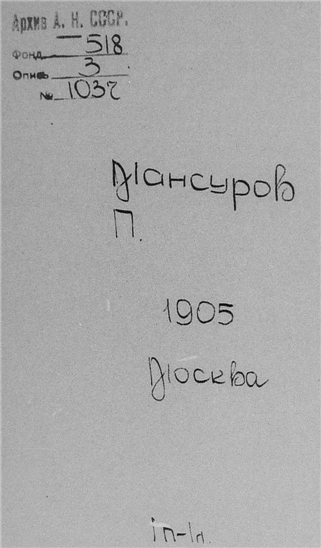 Архив А. Н. СССР.
Фонд 518
Опись 3
№ 1037
Мансуров
П.
1905
Москва
in-1л.